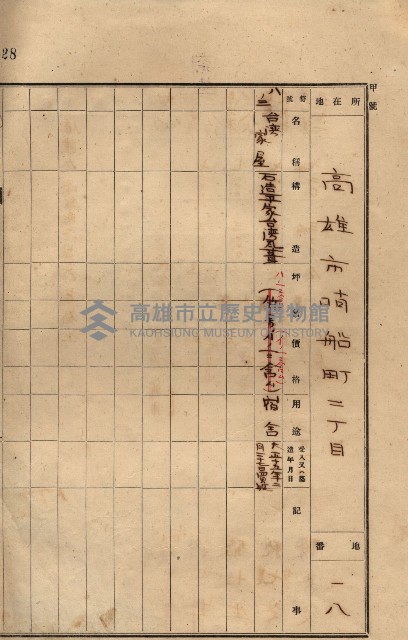 甲號
所在地
高雄市哨船町二丁目
地番
一八
番號
名稱
構造
坪數
價格
用途
受入又ハ建造年月日
記事
八二
台湾家屋
石造平家台湾瓦葺
宿舍
28
高雄市立歷史博物館
KAOHSIUNG MUSEUM OF HISTORY